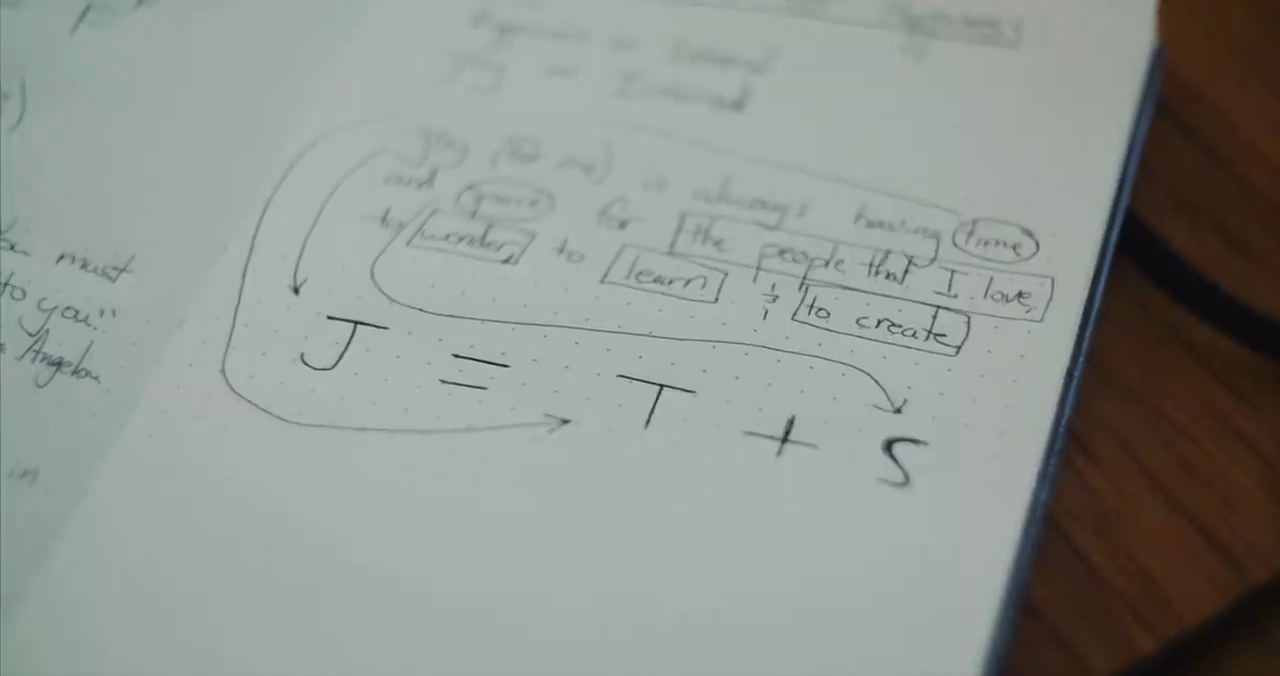 must
to you."
Angelou
in
Joy (for me) is always having time
and space for the people that I love,
to wonder, to learn & to create
J = T + S